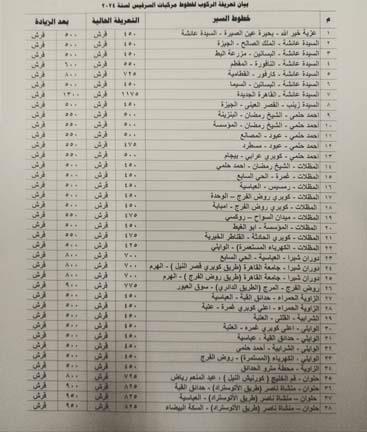 بيان تعريفة الركوب لخطوط مركبات السرفيس لسنة ٢٠٢٤
م خطوط السير التعريفة الحالية بعد الزيادة
١ عزبة خير الله - بحيرة عين الصيرة - السيدة عائشة ٤٥٠ قرش ٥٠٠ قرش
٢ السيدة عائشة - الملك الصالح - الجيزة ٤٥٠ قرش ٥٠٠ قرش
٣ السيدة عائشة - البساتين - مزرعة البط ٤٥٠ قرش ٥٠٠ قرش
٤ السيدة عائشة - النافورة - المقطم ٥٥٠ قرش ٦٠٠ قرش
٥ السيدة عائشة - كارفور - القطامية ٧٢٥ قرش ٨٠٠ قرش
٦ السيدة عائشة - البساتين - السيما ٤٥٠ قرش ٥٠٠ قرش
٧ السيدة عائشة - القاهرة الجديدة ١١٧٥ قرش ١٣٠٠ قرش
٨ السيدة زينب - القصر العيني - الجيزة ٤٥٠ قرش ٥٠٠ قرش
٩ احمد حلمي - الشيخ رمضان - البنزينة ٥٠٠ قرش ٥٥٠ قرش
١٠ احمد حلمي - الشيخ رمضان - المؤسسة ٥٠٠ قرش ٥٥٠ قرش
١١ احمد حلمي - عبود - المصانع ٥٠٠ قرش ٥٥٠ قرش
١٢ احمد حلمي - عبود - مسطرد ٤٧٥ قرش ٥٥٠ قرش
١٣ احمد حلمي - كوبري عرابي - بيجام ٥٠٠ قرش ٥٥٠ قرش
١٤ المظلات - الشيخ رمضان - احمد حلمي ٤٥٠ قرش ٥٠٠ قرش
١٥ المظلات - غمرة - الحي السابع ٤٥٠ قرش ٥٠٠ قرش
١٦ المظلات - رمسيس - العباسية ٤٥٠ قرش ٥٠٠ قرش
١٧ المظلات - كوبري روض الفرج - الوحدة ٤٥٠ قرش ٥٠٠ قرش
١٨ المظلات - كوبري روض الفرج - امبابة ٤٥٠ قرش ٥٠٠ قرش
١٩ المظلات - ميدان السواح - روكسي ٤٧٥ قرش ٥٥٠ قرش
٢٠ المظلات - المؤسسة - ابو الغيط ٤٥٠ قرش ٥٠٠ قرش
٢١ المظلات - كوبري الحادثة - القناطر الخيرية ٤٧٥ قرش ٥٥٠ قرش
٢٢ المظلات - الكهرباء (المستعمرة) - الوايلي ٤٢٥ قرش ٥٠٠ قرش
٢٣ دوران شبرا - العباسية - الحي السابع ٧٠٠ قرش ٨٠٠ قرش
٢٤ دوران شبرا - جامعة القاهرة (طريق كوبري قصر النيل) - الهرم ٧٠٠ قرش ٨٠٠ قرش
٢٥ دوران شبرا - جامعة القاهرة (طريق روض الفرج) - الهرم ٧٠٠ قرش ٨٠٠ قرش
٢٦ روض الفرج - المرج (الطريق الدائري) - سوق العبور ٧٧٥ قرش ٩٠٠ قرش
٢٧ الزاوية الحمراء - حدائق القبة - العباسية ٤٥٠ قرش ٥٠٠ قرش
٢٨ الزاوية الحمراء - اعلي كوبري غمرة - عتبة ٤٥٠ قرش ٥٠٠ قرش
٢٩ الشرابية - القللي - العتبة ٤٥٠ قرش ٥٠٠ قرش
٣٠ الوايلي - اعلي كوبري غمره - العتبة ٤٥٠ قرش ٥٠٠ قرش
٣١ الوايلي - حدائق القبة - عباسية ٤٥٠ قرش ٥٠٠ قرش
٣٢ الوايلي - الشرابية - أحمد حلمي ٤٥٠ قرش ٥٠٠ قرش
٣٣ الوايلي - الكهرباء (المستعمرة) - روض الفرج ٤٥٠ قرش ٥٠٠ قرش
٣٤ الزاوية - محطة مترو الحدائق ٤٥٠ قرش ٥٠٠ قرش
٣٥ حلوان - فم الخليج (كورنيش النيل) - عبد المنعم رياض ٧٢٥ قرش ٨٠٠ قرش
٣٦ حلوان - منشاة ناصر (طريق الأتوستراد) - حدائق القبة ٨٢٥ قرش ٩٠٠ قرش
٣٧ حلوان - منشاة ناصر (طريق الأتوستراد) - العباسية ٨٢٥ قرش ٩٥٠ قرش
٣٨ حلوان - منشاة ناصر (طريق الأتوستراد) - السكة البيضاء ٨٢٥ قرش ٩٥٠ قرش